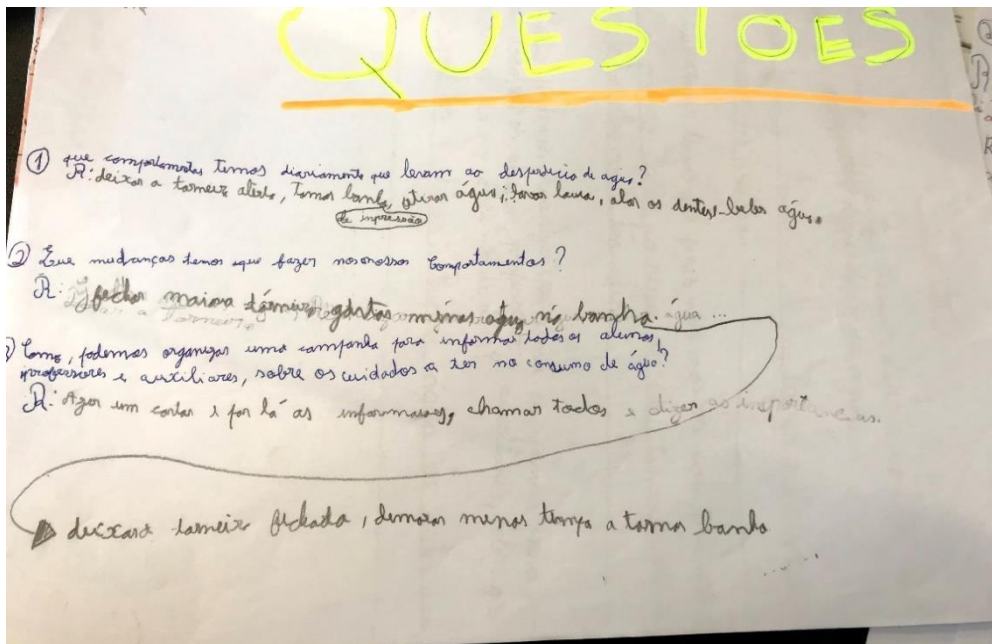 QUESTOES
① que comportamentos temos diariamente que levam ao desperdicio de agua?
R: deixar a torneira aberta, Tomar banho, atirar água, lavar laura, os dentes, beber água.
de impressão
② Que mudanças temos que fazer nos nossos comportamentos?
R: fechar maisa torneira gastar menos agua no banho. água ...
Como, podemos organizar uma campanha para informar todos os alunos,
professores e auxiliares, sobre os cuidados a ter no consumo de água?
R: um cartas e por lá as informaçoes, chamar todos e dizer as importancias.
deixara torneira fechada, demorar menos tempo a tomar banho